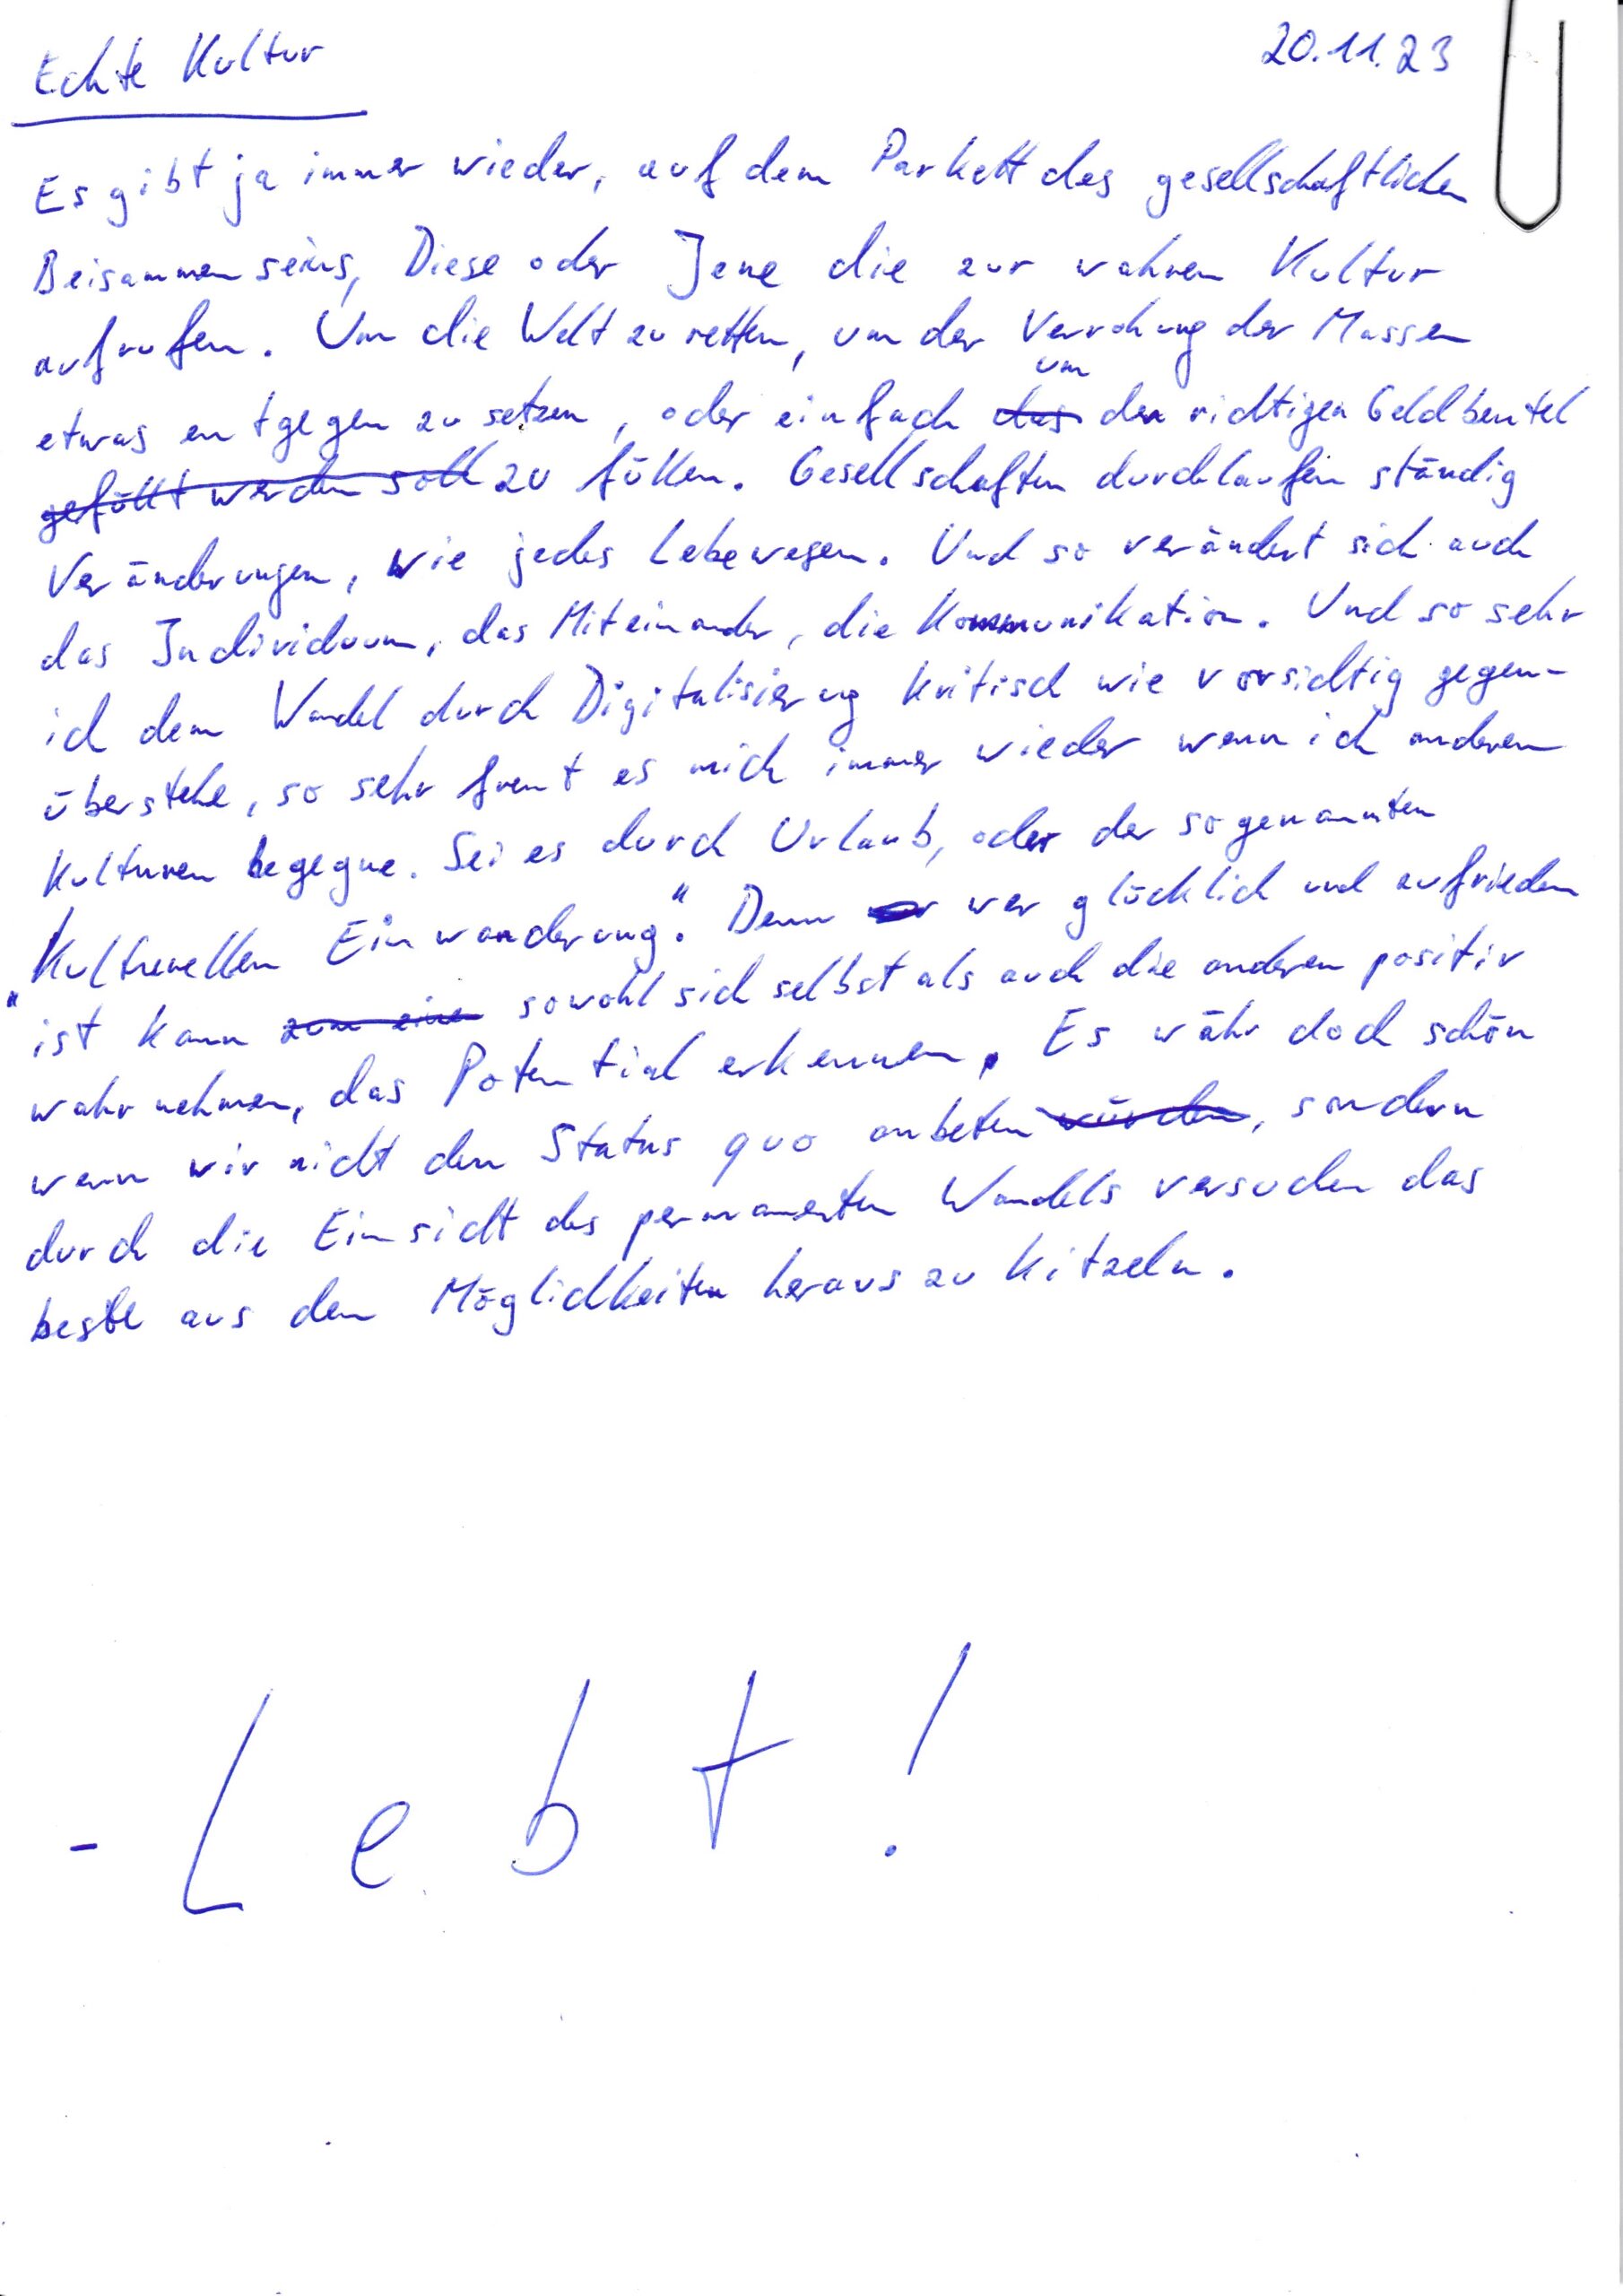 Echte Kultur 20.11.23
Es gibt ja immer wieder, auf dem Parkett des gesellschaftlichen
Beisammenseins, Diese oder Jene die zur wahren Kultur
aufrufen. Um die Welt zu retten, um der Verrohung der Massen
um
etwas entgegen zu setzen, oder einfach das den richtigen Geldbeutel
gefüllt werden soll zu füllen. Gesellschaften durchlaufen ständig
Veränderungen, wie jedes Lebewesen. Und so verändert sich auch
das Individuum, das Miteinander, die Kommunikation. Und so sehr
ich dem Wandel durch Digitalisierung kritisch wie vorsichtig gegen-
überstehe, so sehr freut es mich immer wieder wenn ich anderen
Kulturen begegne. Sei es durch Urlaub, oder der sogenannten
"Kulturellen Einwanderung". Denn wer glücklich und zufrieden
ist kann zum einen sowohl sich selbst als auch die anderen positiv
wahrnehmen, das Potential erkennen. Es währ doch schön
wenn wir nicht den Status quo anbeten würden, sondern
durch die Einsicht des permanenten Wandels versuchen das
beste aus den Möglichkeiten heraus zu kitzeln.
- Lebt!